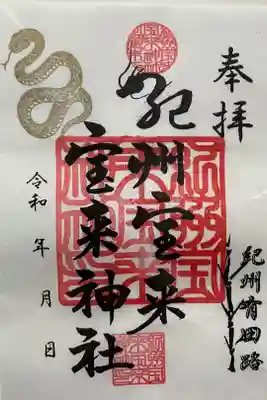 奉拝
紀州有田路
紀州宝来
宝来神社
令和 年 月 日